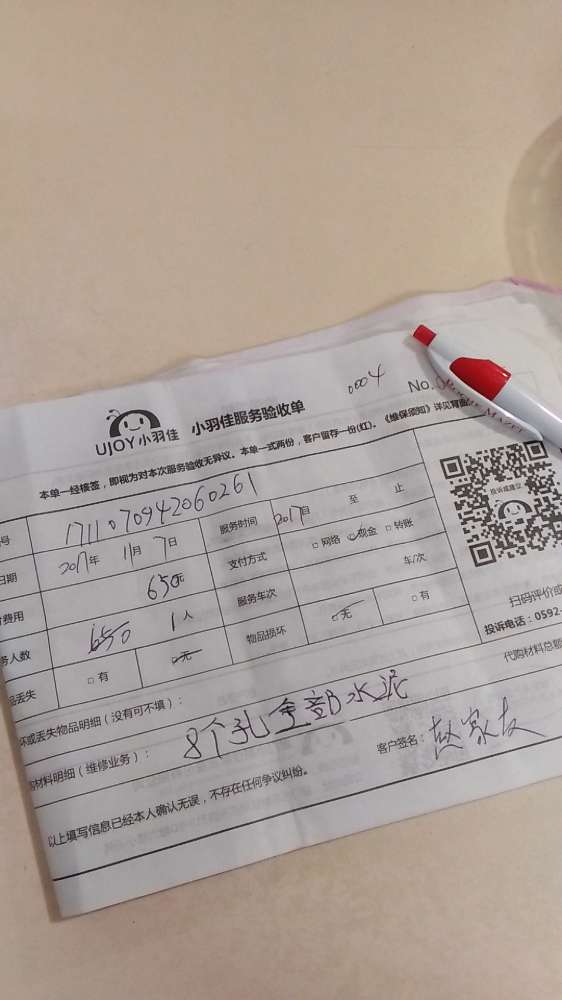 0004
No.
UJOY小羽佳 小羽佳服务验收单
本单一经核签，即视为对本次服务验收无异议。本单一式两份，客户留存一份(红)。《维保须知》详见背面
号 1711070942060261 服务时间 2017月 至 止
日期 2017年 11月 7日 支付方式 □网络 ☑现金 □转账
费用 650元 服务车次 车/次
务人数 650 1人 物品损坏 ☑无 □有
品丢失 □有 ☑无
坏或丢失物品明细（没有可不填）：
材料明细（维修业务）： 8个孔全部水泥
客户签名：
以上填写信息已经本人确认无误，不存在任何争议纠纷。
投诉或建议
扫码评价或
投诉电话：0592-
代购材料总额